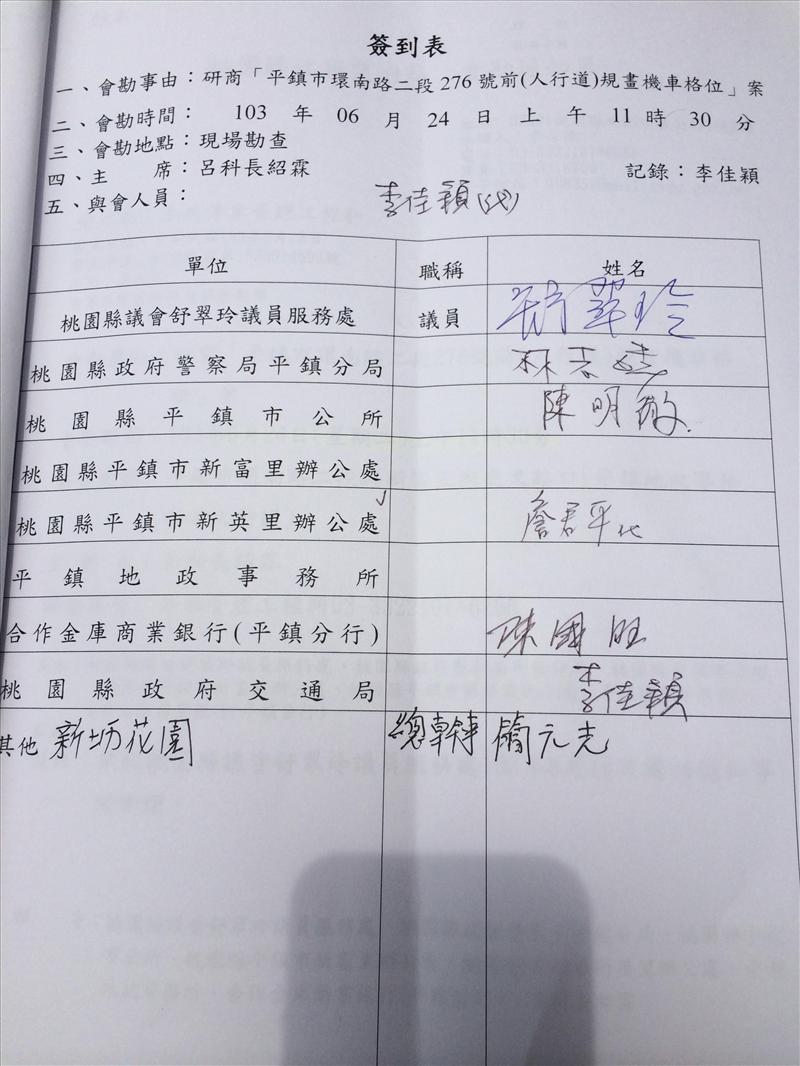 簽到表
一、會勘事由：研商「平鎮市環南路二段276號前(人行道)規畫機車格位」案
二、會勘時間： 103 年 06 月 24 日上午 11 時 30 分
三、會勘地點：現場勘查
四、主 席：呂科長紹霖 記錄：李佳穎
五、與會人員： 李佳穎(代)
單位 職稱 姓名
桃園縣議會舒翠玲議員服務處 議員 舒翠玲
桃園縣政府警察局平鎮分局 林
桃園縣平鎮市公所 陳明
桃園縣平鎮市新富里辦公處
桃園縣平鎮市新英里辦公處 詹君平代
平鎮地政事務所
合作金庫商業銀行(平鎮分行) 陳國旺
桃園縣政府交通局 李佳穎
其他 新坊花園 總幹事 簡元光